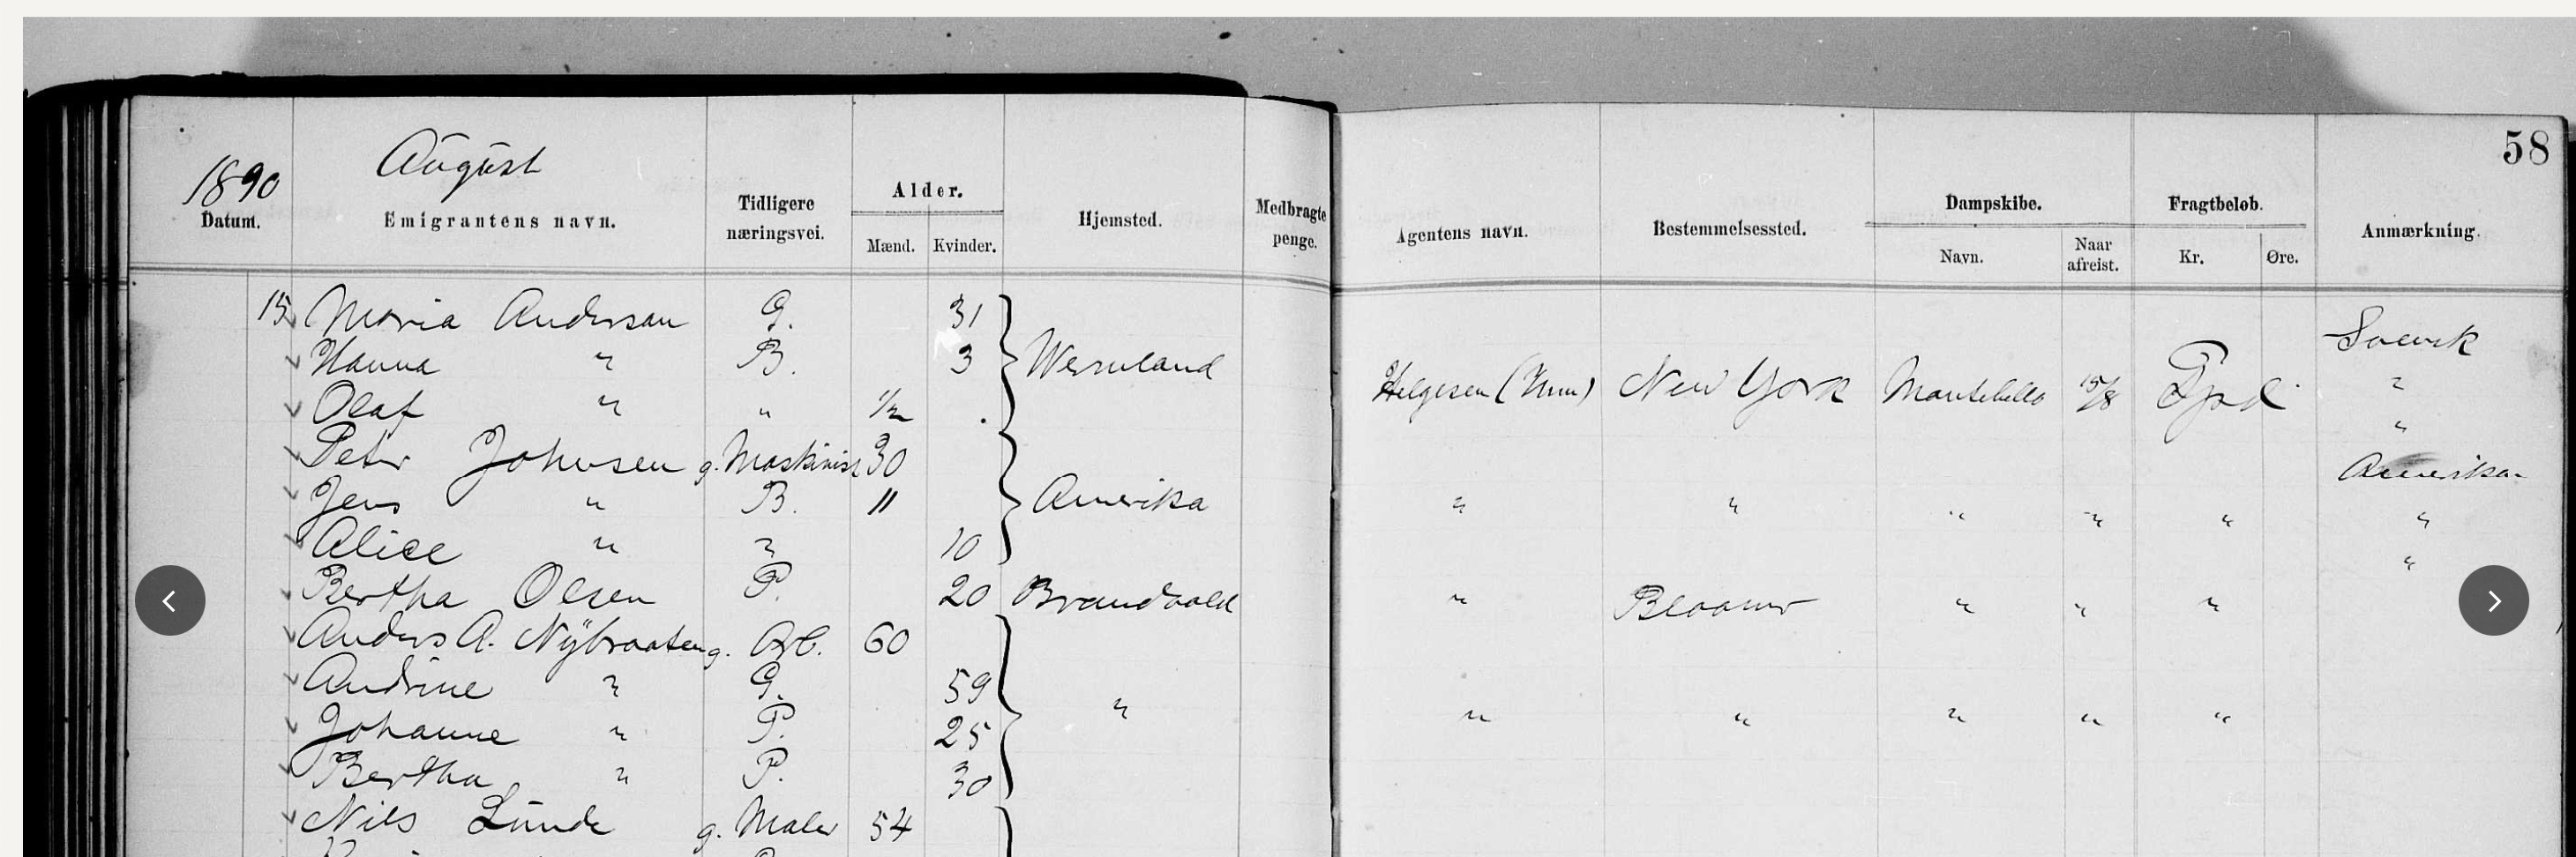 58
1890 August
Datum. Emigrantens navn. Tidligere næringsvei. Alder. Mænd. Kvinder. Hjemsted. Medbragte penge. Agentens navn. Bestemmelsessted. Dampskibe. Navn. Naar afreist. Fragtbeløb. Kr. Øre. Anmærkning.
15 Maria Anderson G. 31 Svensk
Hanna " B. 3 Wermland Helgesen New York Montebello 15/8 "
Olaf " " 1/2 "
Peter Johnsen g. Maskinist 30 Amerikan
Jens " B. 11 Amerika " " " " " "
Alice " " 10 "
Bertha Olsen P. 20 Brandvold " " " "
Anders A. Nÿbraaten g. Arb. 60
Andrine " G. 59
Johanne " P. 25 " " " " " "
Bertha " P. 30
Nils Lunde g. Maler 54